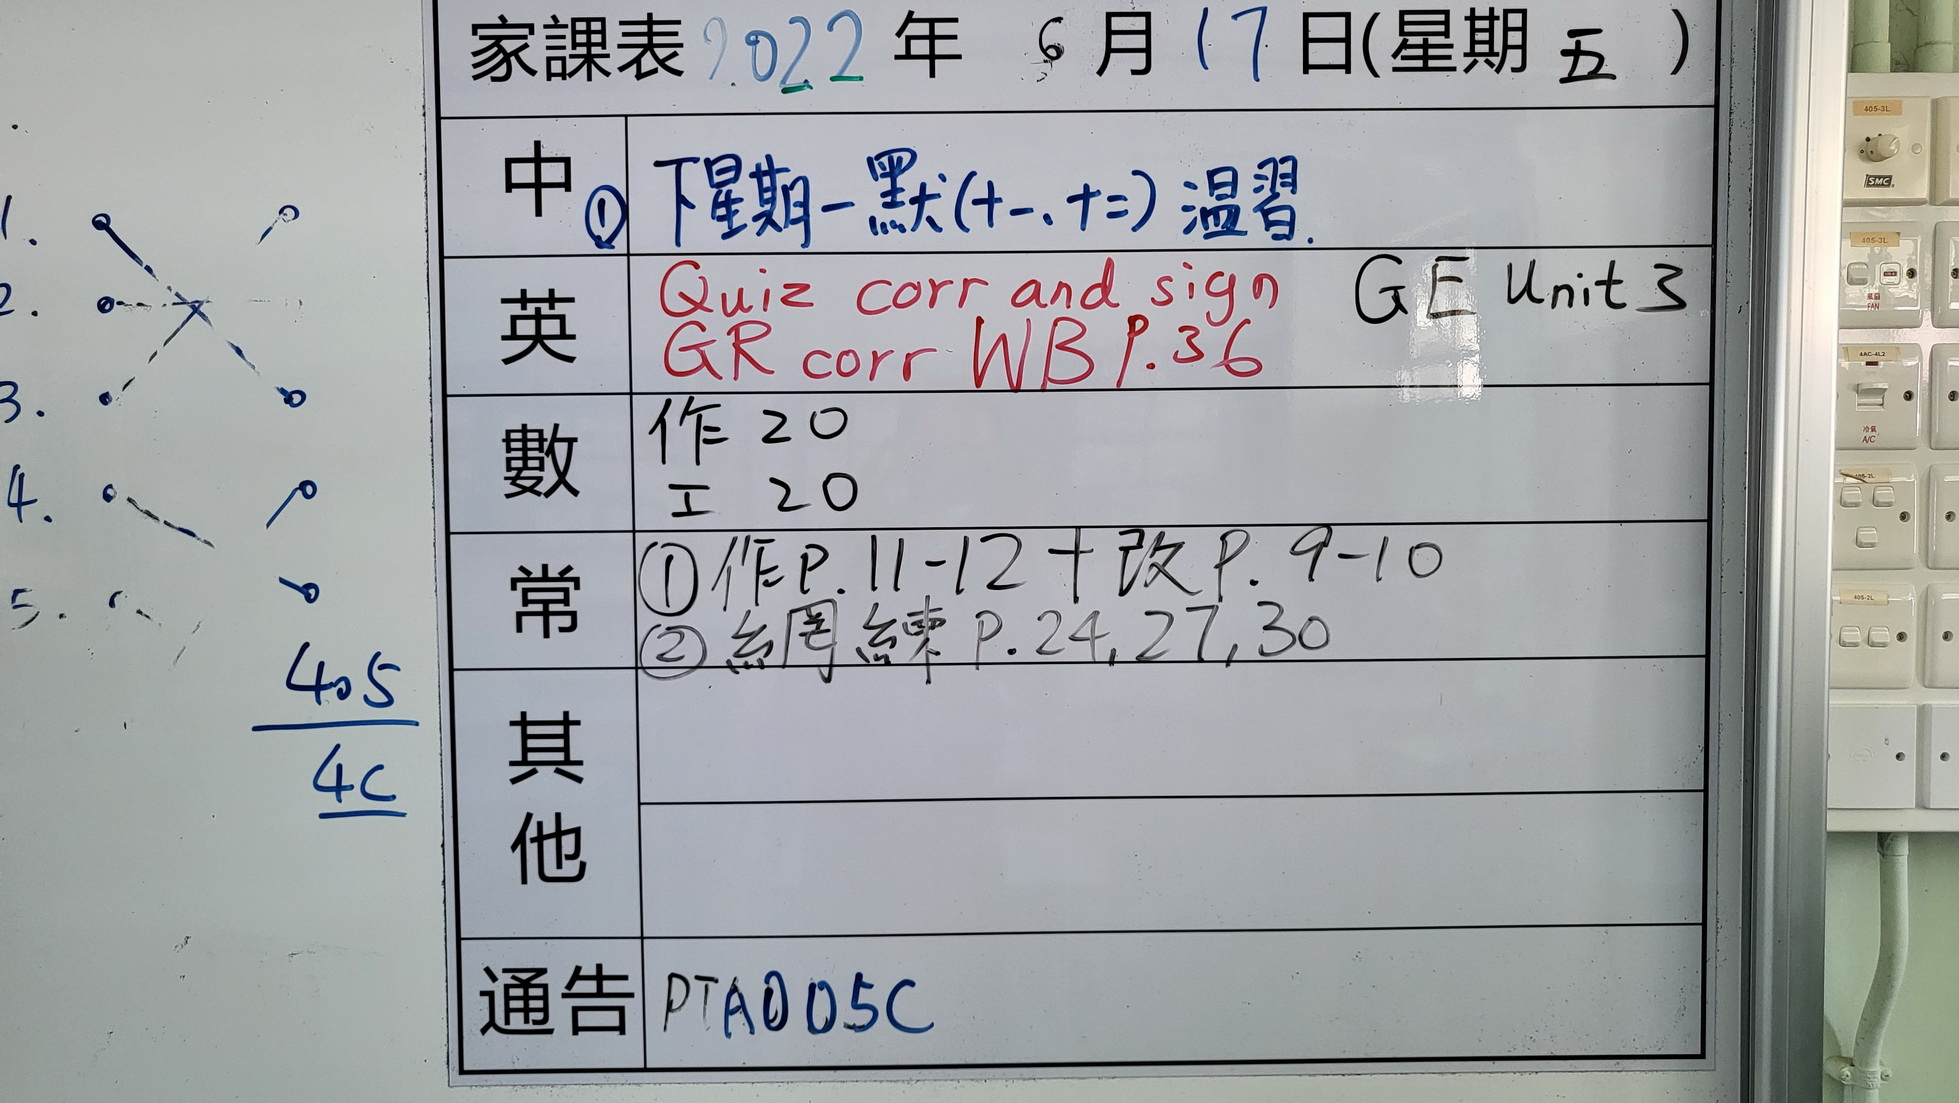 家課表 2022 年 6 月 17 日(星期 五 )
中 ① 下星期一默(十一、十二) 温習.
英 Quiz corr and sign GE Unit 3
GR corr WB P.36
數 作 20
工 20
常 ① 作 P. 11-12 + 改 P. 9-10
② 網練 P. 24, 27, 30
其他
通告 PTA005C
1.
2.
3.
4.
5.
405
4C
405-3L
SMC
405-3L
風扇
FAN
4AC-4L2
冷氣
A/C
405-2L
405-2L